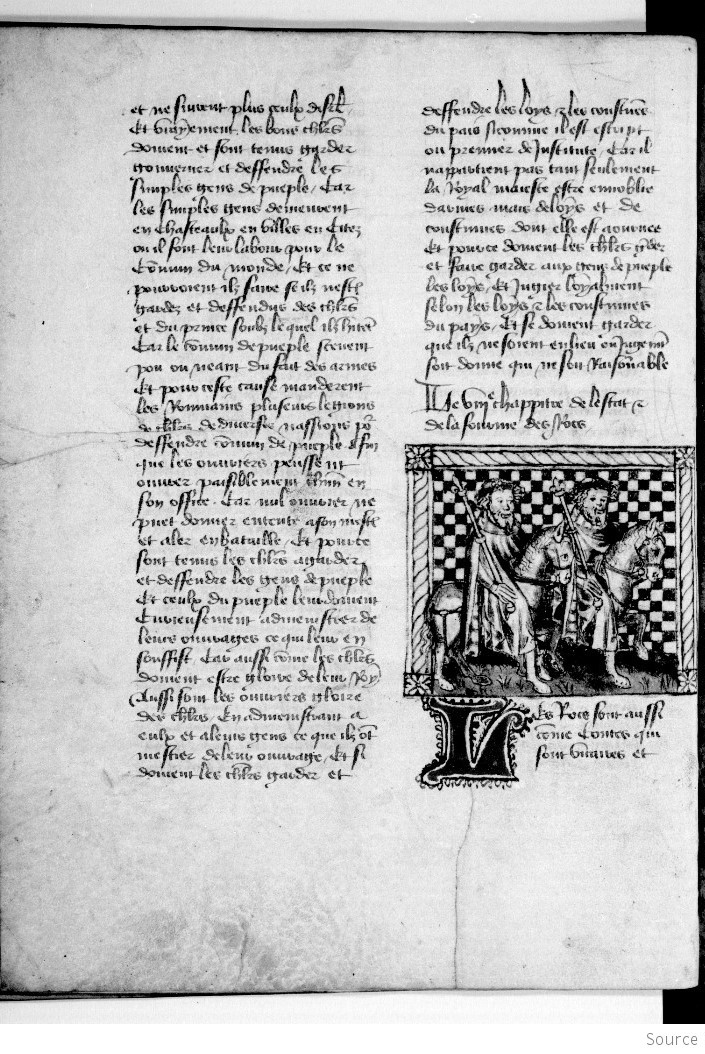 et ne
Et vrayement les bons chlrs
doivent et sont tenus garder
gouverner et deffendre les
simples gens de pueple / Car
les simples gens demeurent
en chasteaulx en villes en Citez
ou il font leur labour pour le
Cōmun du monde / Et ce ne
pourroient ilz faire se ilz
gardez et deffendus des chlrs
et du prince soubz lequel ilz
Car le cōmun de pueple scevent
pou ou neant du fait des armes
Et pour ceste cause manderent
les Rommains plusieurs legions
de chlrs de diverses nassions
deffendre cōmun de pueple
que les ouvriers peussent
ouvrer paisiblement en
son office. Car nul ouvrier ne
puet donner entente a son
et aler en bataille / Et pource
sont tenus les chlrs a garder
et deffendre les gens de pueple
Et ceulx du pueple leur doivent
admenistrer de
leurs ouvrages ce qui leur en
souffist. Car aussi cōme les chlrs
doivent estre gloire de leur Roy
Aussi sont les ouvriers gloire
des chlrs. En admenistrant a
eulx et a leurs gens ce que ilz ōt
mestier de leur ouvrage, Et si
doivent les chlrs garder et
deffendre les loys ⁊ les
du pais si comme il est escript
ou premier de Institute / Car il
nappartient pas tant seulement
la Royal maieste estre ennoblie
darmes mais de loys et de
constumes dont elle est aournee
Et pource doivent les chlrs
et faire garder aux gens de pueple
les loys, Et Jugier loyalment
selon les loys ⁊ les constumes
du pays, Et se doivent garder
que ilz ne soient en lieu ou
soit donne qui ne soit Raisōnable
Le chappitre de lestat ⁊
de la fourme des Rocs
Les Rocs sont aussi
cōme Contes qui
sont vicaires et
Source